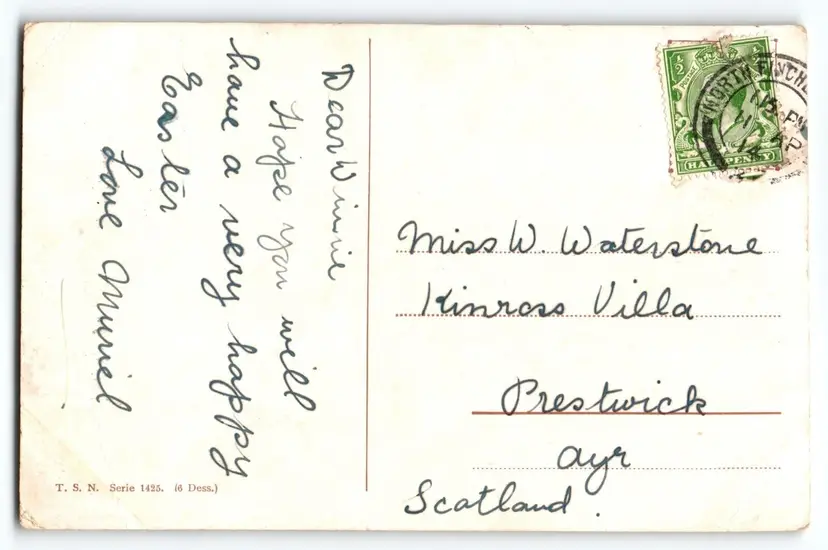 Dear Winnie
Hope you will
have a very happy
Easter
Love Muriel
T. S. N. Serie 1425. (6 Dess.)
½
HALFPENNY
NORTH FINCH
PM
AP
14
Miss W. Waterstone
Kinross Villa
Prestwick
Ayr
Scotland.